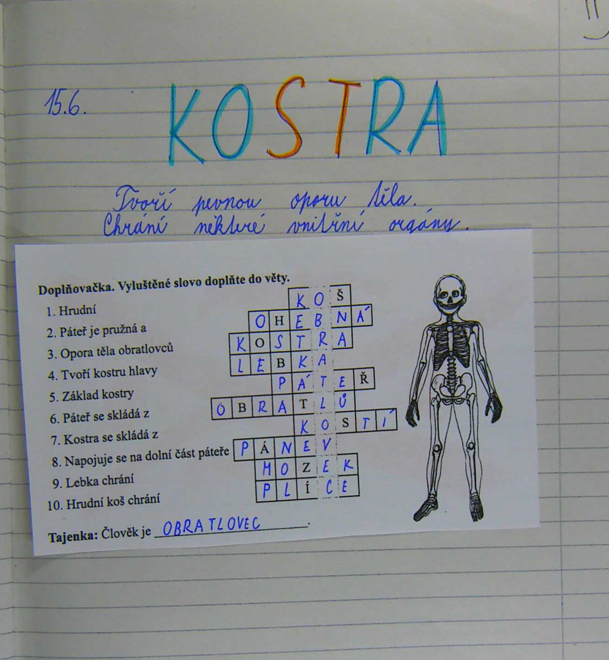 15.6.
KOSTRA
Tvoří pevnou oporu těla.
Chrání některé vnitřní orgány.
Doplňovačka. Vyluštěné slovo doplňte do věty.
1. Hrudní
KOŠ
2. Páteř je pružná a
OHEBNÁ
3. Opora těla obratlovců
KOSTRA
4. Tvoří kostru hlavy
LEBKA
5. Základ kostry
PÁTEŘ
6. Páteř se skládá z
OBRATLŮ
7. Kostra se skládá z
KOSTÍ
8. Napojuje se na dolní část páteře
PÁNEV
9. Lebka chrání
MOZEK
10. Hrudní koš chrání
PLÍCE
Tajenka: Člověk je OBRATLOVEC.